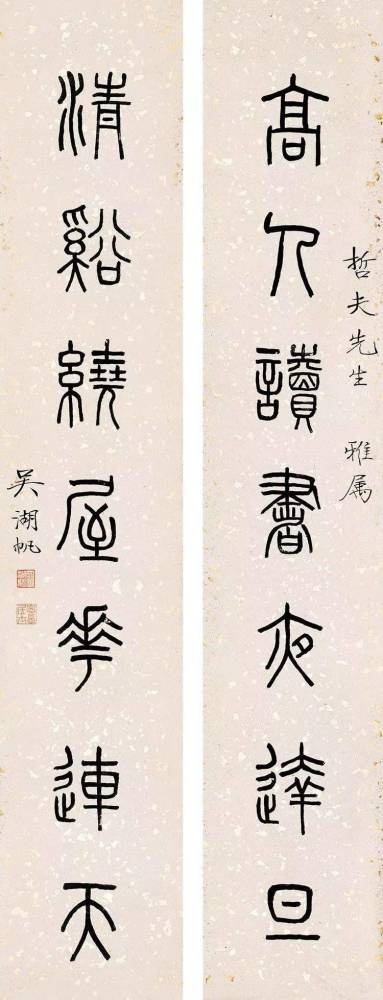 哲夫先生 雅属
高人讀書夜達旦
清谿繞屋華連天
吳湖帆